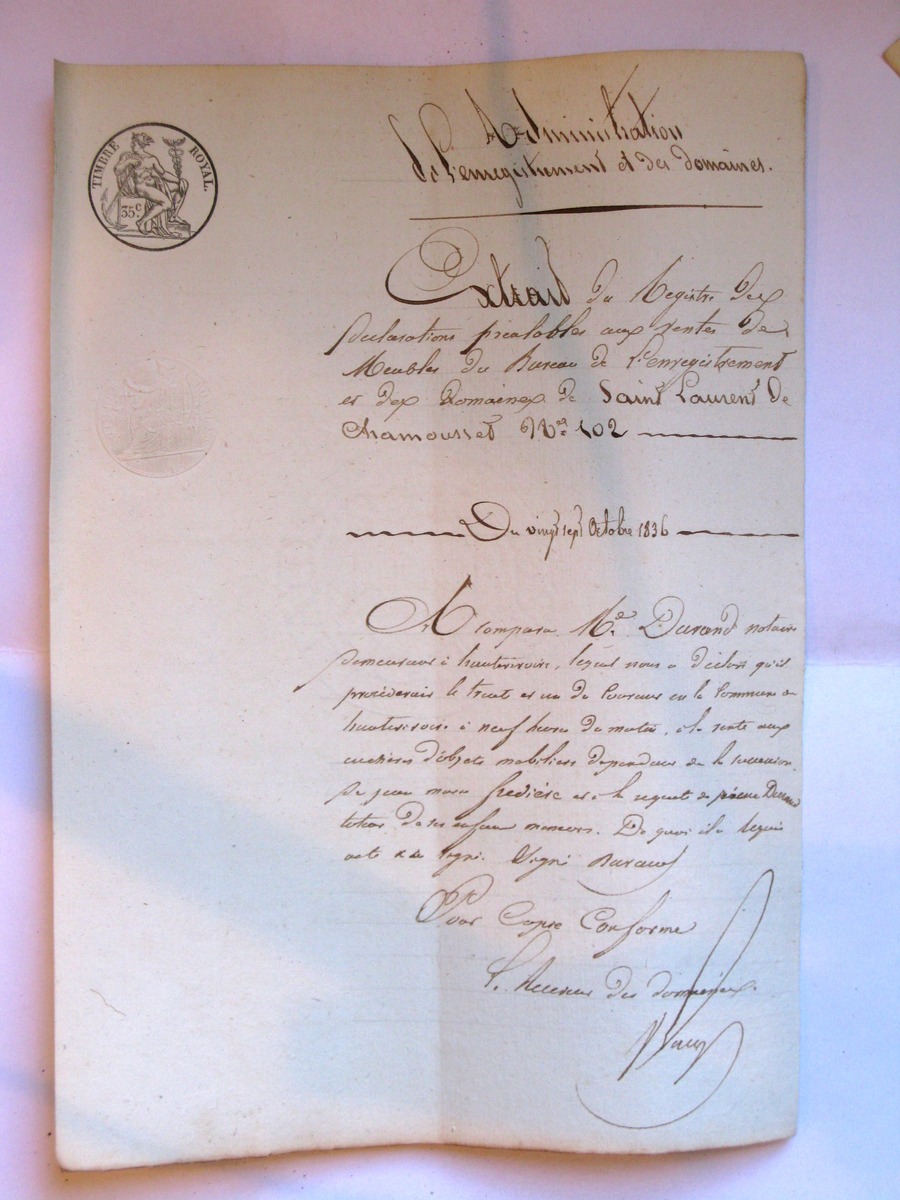 TIMBRE ROYAL.
35 c.
Administration
de l'enregistrement et des domaines.
Extrait du Registre des
Declarations préalables aux ventes de
Meubles du Bureau de l'enregistrement
et des Domaines de Saint Laurent de
Chamousset No. 102
Du vingt sept Octobre 1836
A comparu Me. Durand notaire
demeurant à hauterivoire, lequel nous a déclaré qu'il
procéderait le trente et un du Courant en la Commune
hauterivoire à neuf heures du matin, à la vente aux
enchères d'objets mobiliers dependant de la succession
de jean marie et à la requete de
tuteur de ses enfans mineurs. De quoi il a requis
acte et a signé. Signé Durand
Pour Copie Conforme
Le Receveur des domaines.